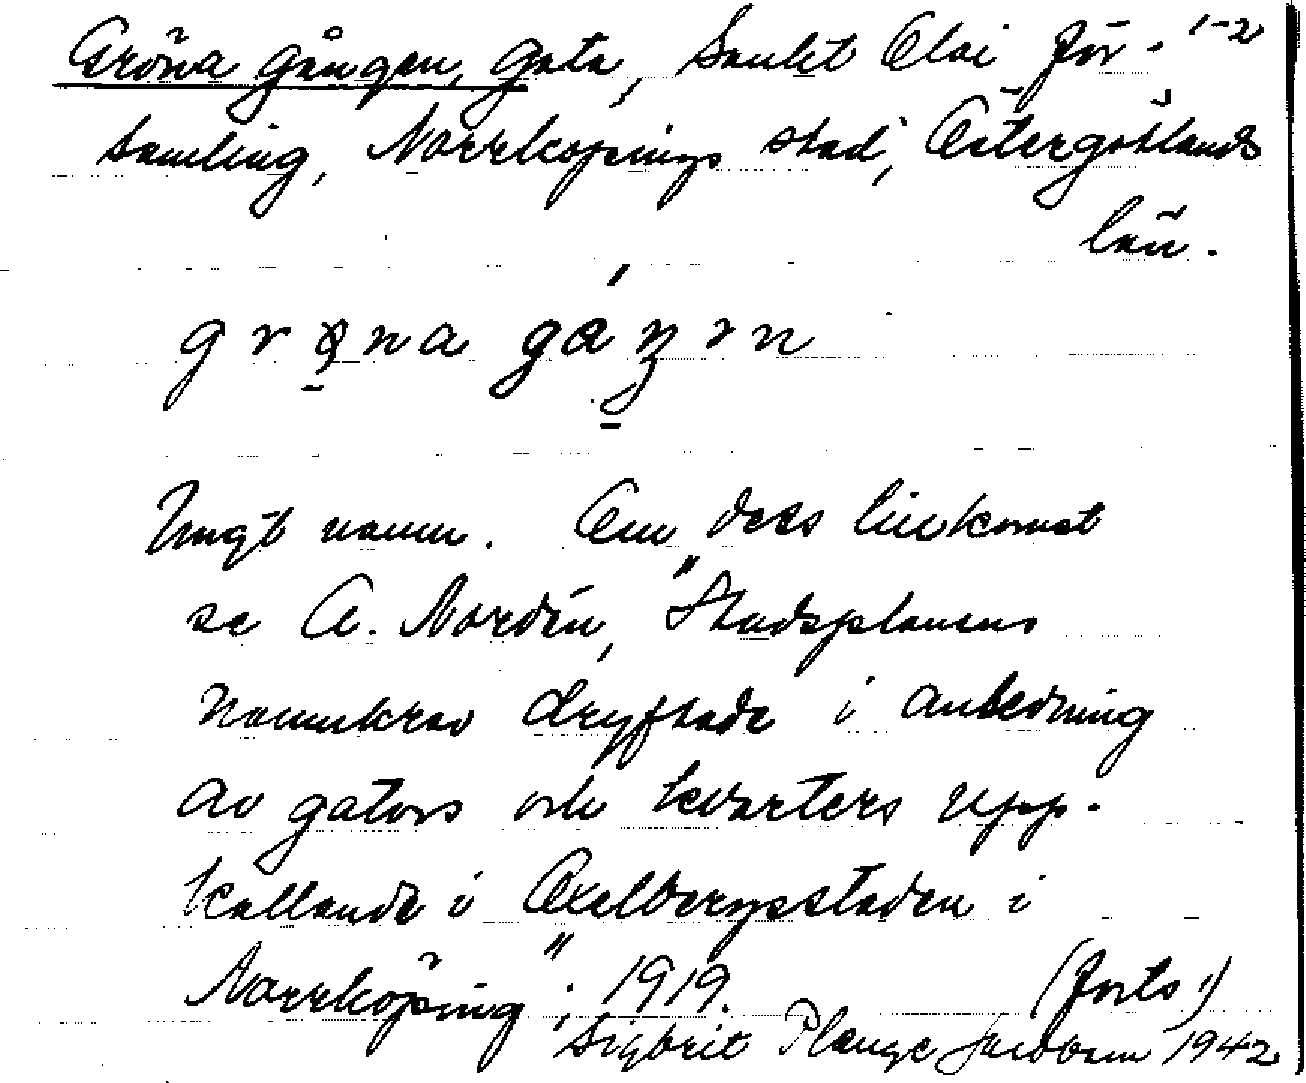 Gröna gången, gata, Sankt Olai för- 1-2
samling, Norrköpings stad, Östergötlands
län.
grø̠na gáŋ̠ɜn
Ungt namn. Om dess tillkomst
se A. Nordén, "Stadsplanens
namnkrav dryftade i anledning
av gators och kvarters upp-
kallande i Oxelbergsstaden i
Norrköping", 1919. (forts!)
Sigbrit Plænge Jacobson 1942